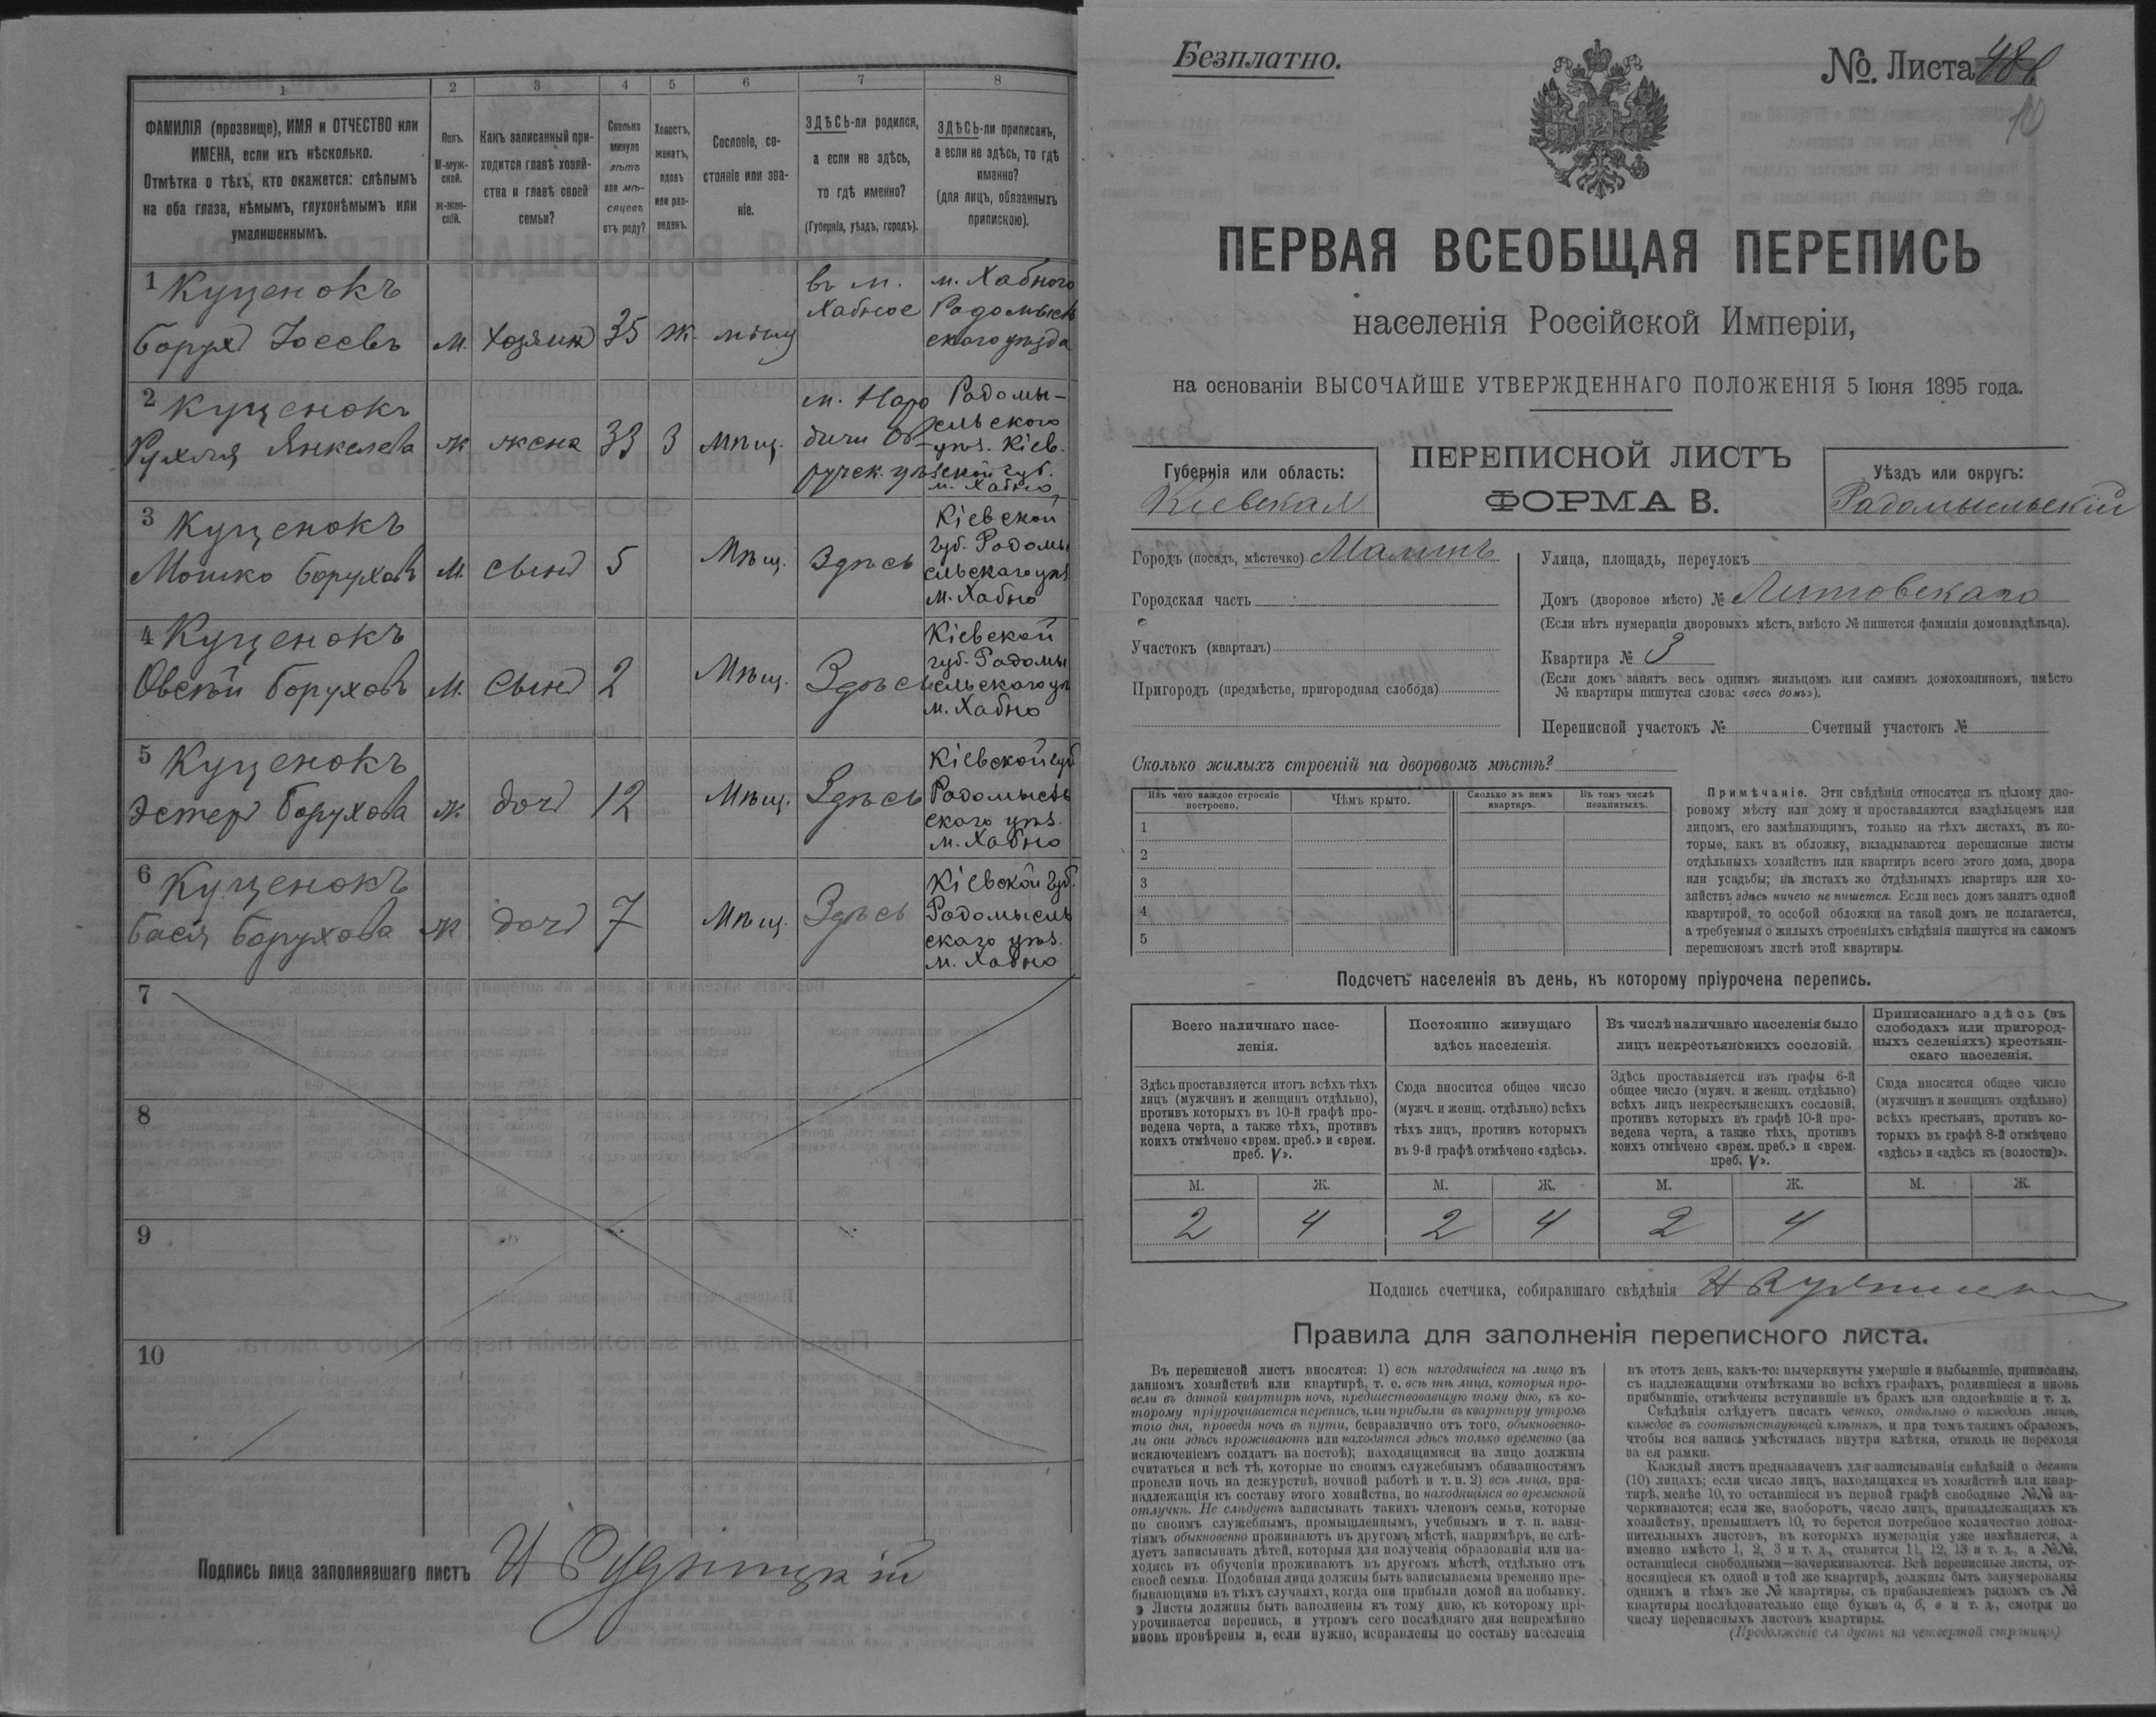 1
2
3
4
5
6
7
8
ФАМИЛІЯ (прозвище), ИМЯ и ОТЧЕСТВО или
ИМЕНА, если ихъ нѣсколько.
Отмѣтка о тѣхъ, кто окажется: слѣпымъ
на оба глаза, нѣмымъ, глухонѣмымъ или
умалишеннымъ.
Полъ.
М-муж-
ской.
ж-жен-
скій.
Какъ записанный при-
ходится главѣ хозяй-
ства и главѣ своей
семьи?
Сколько
минуло
лѣтъ
или мѣ-
сяцевъ
отъ роду?
Холостъ,
женатъ,
вдовъ
или раз-
веденъ.
Сословіе, со-
стояніе или зва-
ніе.
ЗДѢСЬ-ли родился,
а если не здѣсь,
то гдѣ именно?
(Губернія, уѣздъ, городъ).
ЗДѢСЬ-ли приписанъ,
а если не здѣсь, то гдѣ
именно?
(для лицъ, обязанныхъ
припискою).
1 Куценокъ
Борухъ Іосевъ
м.
хозяинъ
35
ж.
мѣщ
въ м.
Хабное
м. Хабного
Радомысль
скаго уѣзда
2 Куценокъ
Рухля Янкелева
ж
жена
33
З
мѣщ.
м. Наро
дичи Ов
ручск. уѣз
Радомы-
сльского
уѣз. Кіев.
ской губ.
м. Хабно
3 Куценокъ
Мошко Боруховъ
м.
сынъ
5
Мѣщ.
Здѣсь
Кіевской
губ. Радомы
сльскаго уѣз
м. Хабно
4 Куценокъ
Овсѣй Боруховъ
м.
сынъ
2
Мѣщ.
Здѣсь
Кіевской
губ. Радомы
сльскаго уѣ
м. Хабно
5 Куценокъ
Эстеръ Борухова
ж.
дочь
12
Мѣщ.
Здѣсь
Кіевской губ
Радомысль
ского уѣз.
м. Хабно
6 Куценокъ
Бася Борухова
ж
дочь
7
Мѣщ.
Здѣсь
Кіевской губ.
Радомысль
скаго уѣз.
м. Хабно
7
8
9
10
Подпись лица заполнявшаго листъ И Рудницкій
Безплатно.
№. Листа 48
10
ПЕРВАЯ ВСЕОБЩАЯ ПЕРЕПИСЬ
населенія Россійской Имперіи,
на основаніи ВЫСОЧАЙШЕ УТВЕРЖДЕННАГО ПОЛОЖЕНІЯ 5 Іюня 1895 года.
Губернія или область:
Кіевская
ПЕРЕПИСНОЙ ЛИСТЪ
ФОРМА В.
Уѣздъ или округъ:
Радомысльскій
Городъ (посадъ, мѣстечко) Малинъ
Городская часть
Участокъ (кварталъ)
Пригородъ (предмѣстье, пригородная слобода)
Улица, площадь, переулокъ
Домъ (дворовое мѣсто) № Литовскаго
(Если нѣтъ нумераціи дворовыхъ мѣстъ, вмѣсто № пишется фамилія домовладѣльца).
Квартира № 3
(Если домъ занятъ весь однимъ жильцомъ или самимъ домохозяиномъ, вмѣсто
№ квартиры пишутся слова: «весь домъ»).
Переписной участокъ № Счетный участокъ №
Сколько жилыхъ строеній на дворовомъ мѣстѣ?
Изъ чего каждое строеніе
построено.
Чѣмъ крыто.
Сколько въ немъ
квартиръ.
Въ томъ числѣ
незанятыхъ.
1
2
3
4
5
Примѣчаніе. Эти свѣдѣнія относятся къ цѣлому дво-
ровому мѣсту или дому и проставляются владѣльцемъ или
лицомъ, его замѣняющимъ, только на тѣхъ листахъ, въ ко-
торые, какъ въ обложку, вкладываются переписные листы
отдѣльныхъ хозяйствъ или квартиръ всего этого дома, двора
или усадьбы; на листахъ же отдѣльныхъ квартиръ или хо-
зяйствъ здѣсь ничего не пишется. Если весь домъ занятъ одной
квартирой, то особой обложки на такой домъ не полагается,
а требуемыя о жилыхъ строеніяхъ свѣдѣнія пишутся на самомъ
переписномъ листѣ этой квартиры.
Подсчетъ населенія въ день, къ которому пріурочена перепись.
Всего наличнаго насе-
ленія.
Постоянно живущаго
здѣсь населенія.
Въ числѣ наличнаго населенія было
лицъ некрестьянскихъ сословій.
Приписаннаго здѣсь (въ
слободахъ или пригород-
ныхъ селеніяхъ) крестьян-
скаго населенія.
Здѣсь проставляется итогъ всѣхъ тѣхъ
лицъ (мужчинъ и женщинъ отдѣльно),
противъ которыхъ въ 10-й графѣ про-
ведена черта, а также тѣхъ, противъ
коихъ отмѣчено «врем. преб.» и «врем.
преб. V».
Сюда вносится общее число
(мужч. и женщ. отдѣльно) всѣхъ
тѣхъ лицъ, противъ которыхъ
въ 9-й графѣ отмѣчено «здѣсь».
Здѣсь проставляется изъ графы 6-й
общее число (мужч. и женщ. отдѣльно)
всѣхъ лицъ некрестьянскихъ сословій,
противъ которыхъ въ графѣ 10-й про-
ведена черта, а также тѣхъ, противъ
коихъ отмѣчено «врем. преб.» и «врем.
преб. V».
Сюда вносится общее число
(мужчинъ и женщинъ отдѣльно)
всѣхъ крестьянъ, противъ ко-
торыхъ въ графѣ 8-й отмѣчено
«здѣсь» и «здѣсь къ (волости)».
М. Ж. М. Ж. М. Ж. М. Ж.
2 4 2 4 2 4
Подпись счетчика, собиравшаго свѣдѣнія
Правила для заполненія переписного листа.
Въ переписной листъ вносятся: 1) всѣ находящіеся на лицо въ
данномъ хозяйствѣ или квартирѣ, т. е. всѣ тѣ лица, которыя про-
вели въ данной квартирѣ ночь, предшествовавшую тому дню, къ ко-
торому пріурочивается перепись, или прибыли въ квартиру утромъ
того дня, проведя ночь въ пути, безразлично отъ того, обыкновенно-
ли они здѣсь проживаютъ или находятся здѣсь только временно (за
исключеніемъ солдатъ на постоѣ); находящимися на лицо должны
считаться и всѣ тѣ, которые по своимъ служебнымъ обязанностямъ
провели ночь на дежурствѣ, ночной работѣ и т. п. 2) всѣ лица, при-
надлежащія къ составу этого хозяйства, но находящіяся во временной
отлучкѣ. Не слѣдуетъ записывать такихъ членовъ семьи, которые
по своимъ служебнымъ, промышленнымъ, учебнымъ и т. п. заня-
тіямъ обыкновенно проживаютъ въ другомъ мѣстѣ, напримѣръ, не слѣ-
дуетъ записывать дѣтей, которыя для полученія образованія или на-
ходясь въ обученіи проживаютъ въ другомъ мѣстѣ, отдѣльно отъ
своей семьи. Подобныя лица должны быть записываемы временно пре-
бывающими въ тѣхъ случаяхъ, когда они прибыли домой на побывку.
Листы должны быть заполнены къ тому дню, къ которому прі-
урочивается перепись, и утромъ сего послѣдняго дня непремѣнно
вновь провѣрены и, если нужно, исправлены по составу населенія
въ этотъ день, какъ-то: вычеркнуты умершіе и выбывшіе, приписаны,
съ надлежащими отмѣтками во всѣхъ графахъ, родившіеся и вновь
прибывшіе, отмѣчены вступившіе въ бракъ или овдовѣвшіе и т. д.
Свѣдѣнія слѣдуетъ писать четко, отдѣльно о каждомъ лицѣ,
каждое въ соотвѣтствующей клѣткѣ, и при томъ такимъ образомъ,
чтобы вся запись умѣстилась внутри клѣтки, отнюдь не переходя
за ея рамки.
Каждый листъ предназначенъ для записыванія свѣдѣній о десяти
(10) лицахъ; если число лицъ, находящихся въ хозяйствѣ или квар-
тирѣ, менѣе 10, то оставшіеся въ первой графѣ свободные №№ за-
черкиваются; если же, наоборотъ, число лицъ, принадлежащихъ къ
хозяйству, превышаетъ 10, то берется потребное количество допол-
нительныхъ листовъ, въ которыхъ нумерація уже измѣняется, а
именно вмѣсто 1, 2, 3 и т. д., ставится 11, 12, 13 и т. д., а №№,
оставшіеся свободными—зачеркиваются. Всѣ переписные листы, от-
носящіеся къ одной и той же квартирѣ, должны быть занумерованы
однимъ и тѣмъ же № квартиры, съ прибавленіемъ рядомъ съ №
квартиры послѣдовательно еще буквъ а, б, в и т. д., смотря по
числу переписныхъ листовъ квартиры.
(Продолженіе слѣдуетъ на четвертой страницѣ)